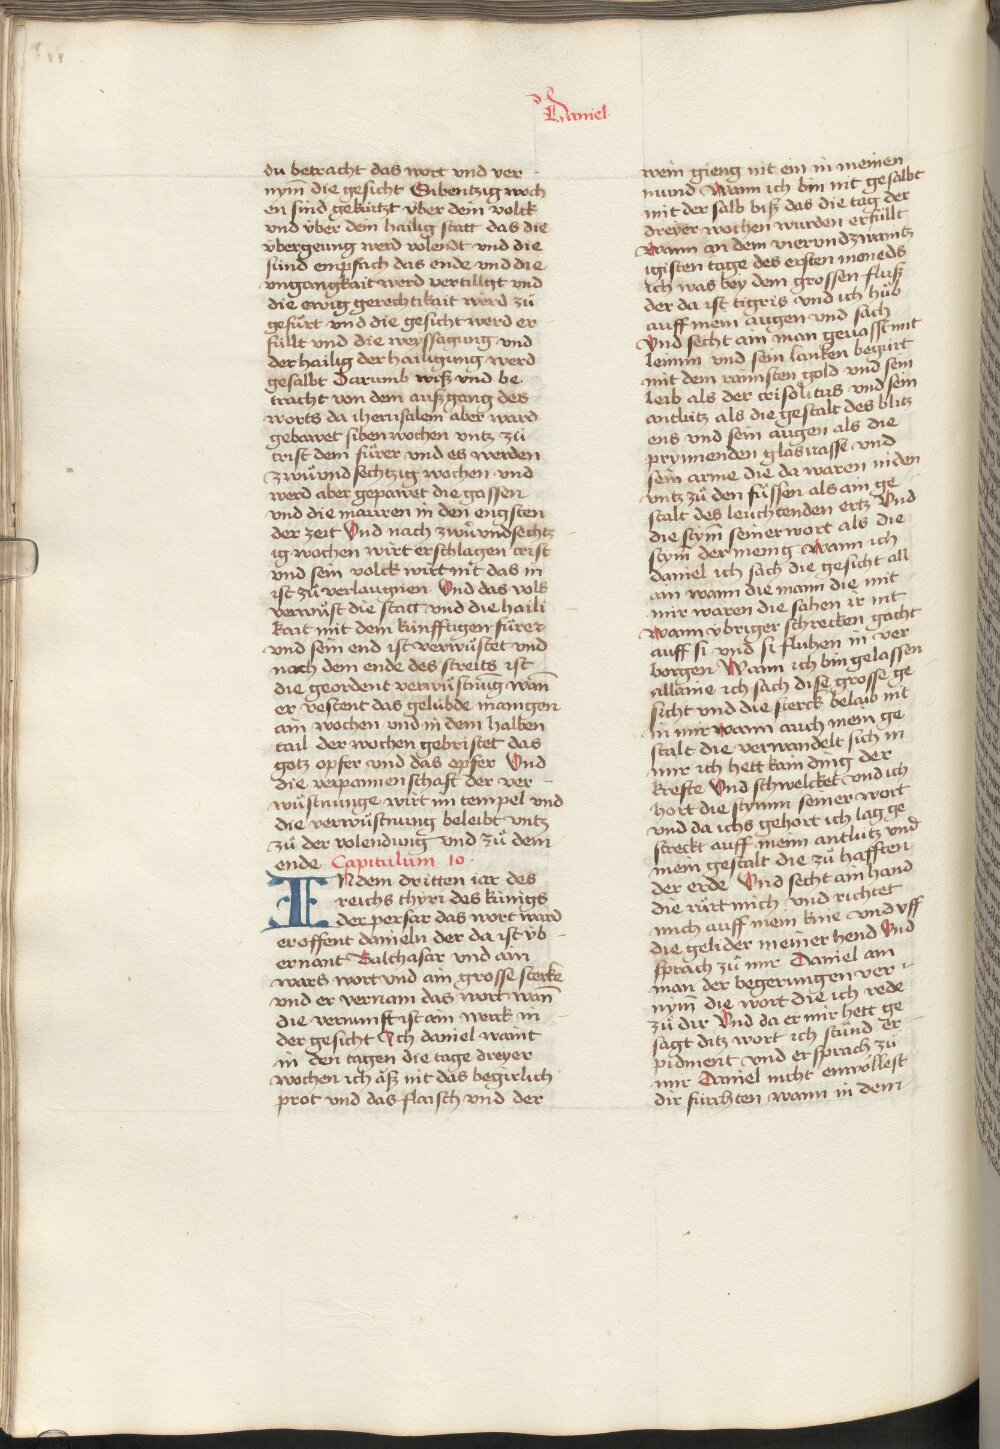 Daniel
du betracht das wort vnd ver
nym̄ die gesicht Sibentzig woch
en sind gekürtzt v̈ber dein volck
vnd v̈ber dein hailig statt das die
v̈bergeung werd volendt vnd die
sünd empfach das ende vnd die
vngangkait werd vertillgt vnd
die ewig gerechtikait werd zů
gefürt vnd die gesicht werd er
füllt vnd die weyssagung vnd
der hailig der hailigung werd
gesalbt Darumb wiß vnd be
tracht von dem außgang des
worts da iherusalem aber ward
gebawet siben wochen vntz zů
crist dem fürer vnd es werden
zwůvnd sechtzig wochen vnd
werd aber gepawet die gassen
vnd die mauren in den engsten
der zeit Vnd nach zwůvndsechtz
ig wochen wirt erschlagen crist
vnd sein volck wirt nit das in
ist zů verlaugnen Vnd das volk
verwüst die statt vnd die haili
kait mit dem künfftigen fürer
vnd sein end ist verwüstet vnd
nach dem ende des streits ist
die geordent verwüstnug wan̄
er vestent das gelübde manigen
ain wochen vnd in dem halben
tail der wochen gebristet das
gotz opfer vnd das opfer Vnd
die verpannenschafft der ver
wüstnunge wirt im tempel vnd
die verwüstnung beleibt vntz
zů der volendung vnd zů dem
ende Capitulum 10
INdem dritten iar des
reichs thyri des künigs
der persar das wort ward
eroffent danieln der da ist v̈b
ernant Balthasar vnd ain
wars wort vnd ain grosse sterke
vnd er vernam das wort wan̄
die vernunft ist ain werk in
der gesicht Ich daniel waint
in den tagen die tage dreyer
wochen ich äß nit das begirlich
prot vnd das flaisch vnd der
wein gieng nit ein in meinen
mund Wann ich bin nit gesalbt
mit der salb biß das die tag der
dreyer wochen wurden erfüllt
Wann an dem vierundzwaintz
igisten tage des ersten moneds
ich was bey dem grossen fluß
der da ist tigris vnd ich hůb
auff mein augen vnd sach
Vnd secht ain man gevasst mit
leinim vnd sein lanken begürt
mit dem rainisten gold vnd sein
leib als der crisolitus vnd sein
antlütz als die gestalt des blitz
ens vnd sein augen als die
prynnenden glasvasse vnd
sein arme die da waren niden
vntz zů den füssen als ain ge
stalt des leuchtenden ertz Vnd
die stym̄ seiner wort als die
stym̄ der menig Wann ich
daniel ich sach die gesicht all
ain wann die mann die mit
mir waren die sahen ir nit
Wann v̈briger schrecken gacht
auff si vnd si fluhen in ver
borgen Wann ich bin gelassen
allaine ich sach dise grosse ge
sicht vnd die sterck belaib nit
in mir wann auch mein ge
stalt die verwandelt sich in
mir ich hett kain ding der
krefte Vnd schwelcket vnd ich
hort die stymm seiner wort
vnd da ichs gehort ich lag ge
streckt auff meim antlutz vnd
mein gestalt die zů hafften
der erde Vnd secht ain hand
die rürt mich vnd richtet
mich auff mein knie vnd vff
die gelider meiner hend Vnd
sprach zů mir Daniel am
man der begerungen ver
nym̄ die wort die ich rede
zů dir Vnd da er mir hett ge
sagt ditz wort ich stůnd er
pidment vnd er sprach zů
mir Daniel nicht enwöllest
dir fürchten wann in dem